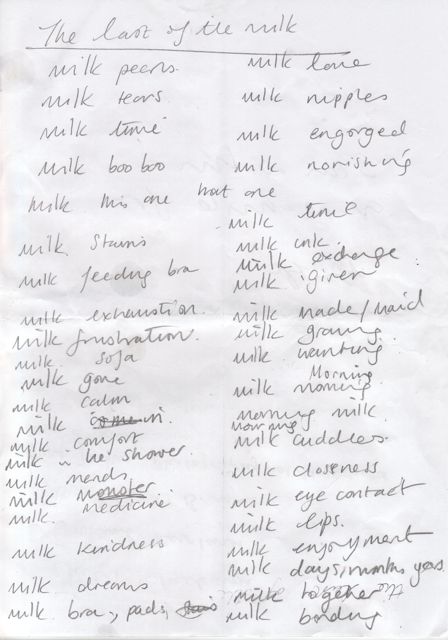 The last of the milk
milk pearls.
milk tears.
milk time
milk boo boo
milk this one that one
milk. Stains
milk feeding bra
milk exhaustion.
milk frustration.
milk sofa
milk gone
milk calm
milk come in.
milk comfort
milk in the shower.
milk needs
milk monster
milk. medicine
milk kindness
milk dreams
milk bra, pads,
milk love
milk nipples
milk engorged
milk norishing
milk time
milk ink.
milk exchange
milk given
milk made/maid
milk
milk wanting
Morning
milk
morning milk.
milk cuddles.
milk closeness
milk eye contact
milk lips.
milk enjoyment
milk days, months years.
milk together
milk bonding